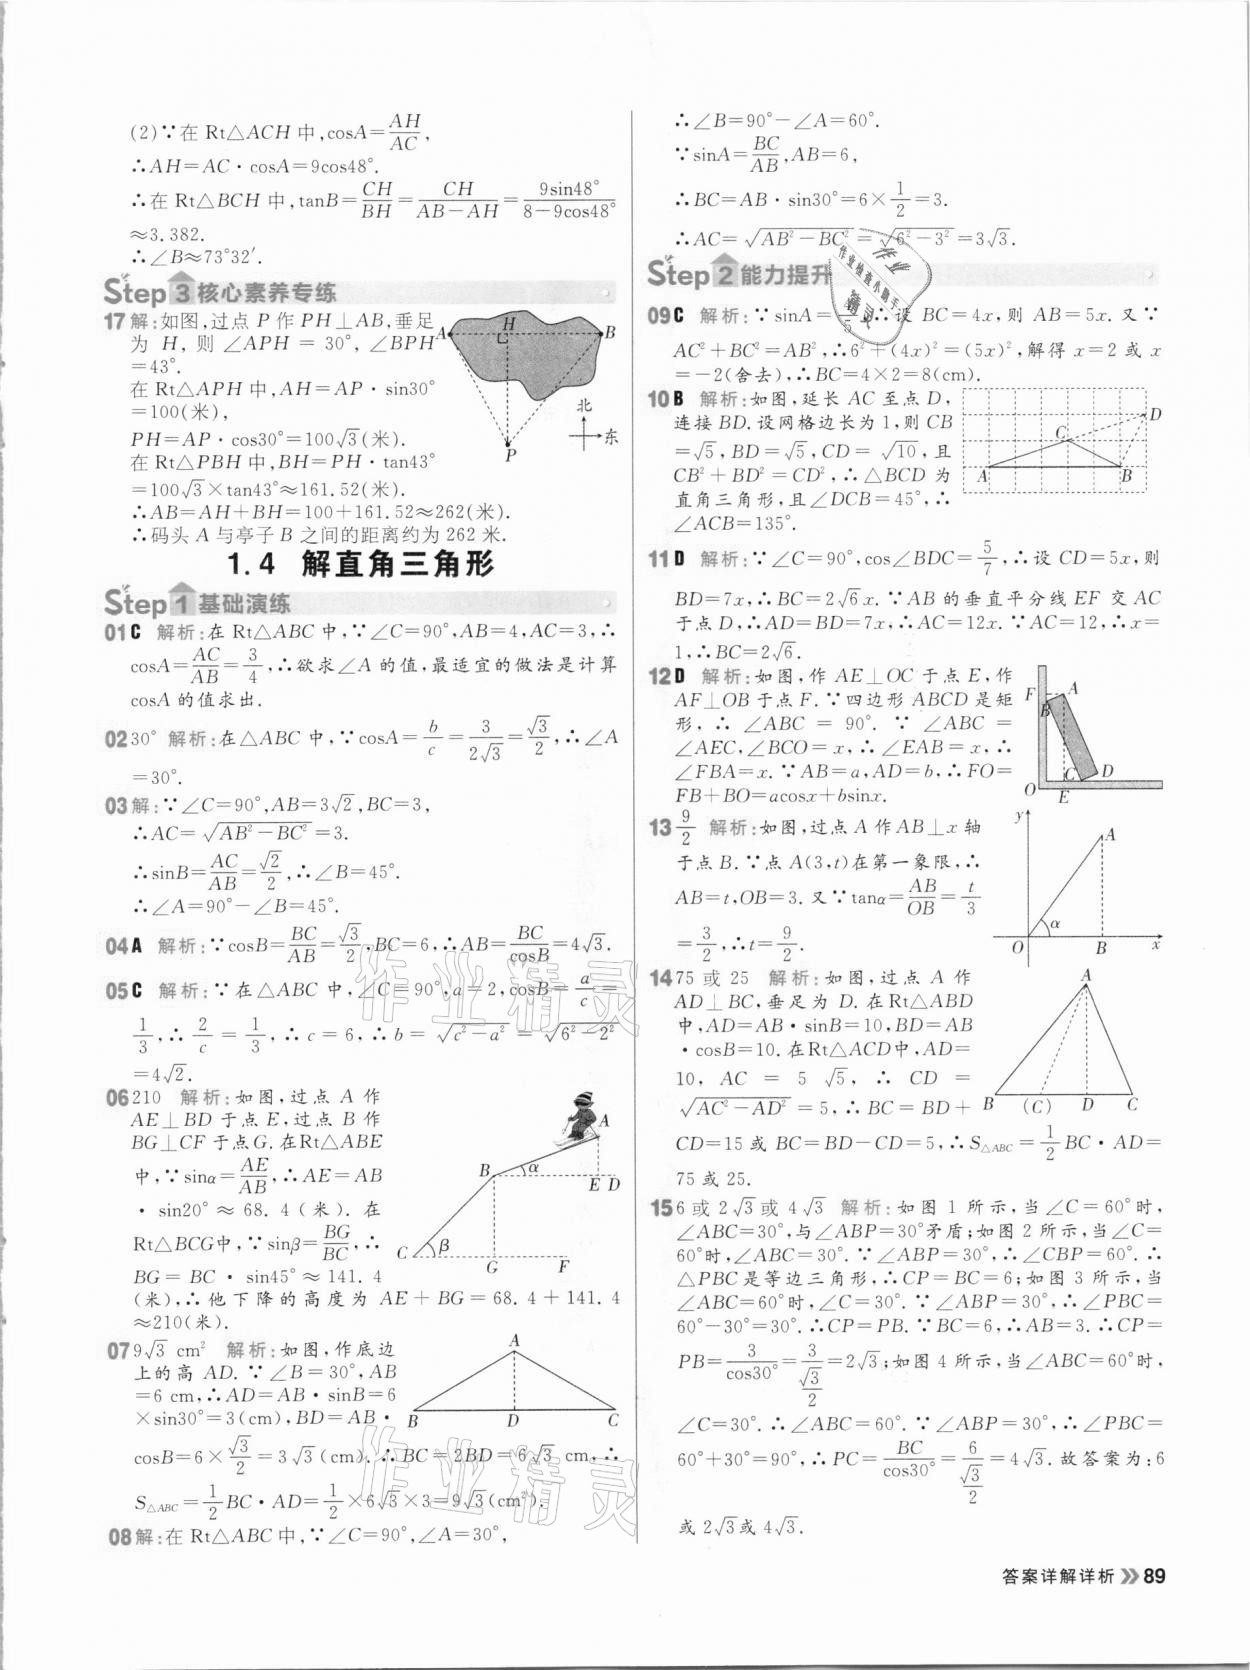 (2)∵在 Rt△ACH 中,cosA=AH/AC,
∴AH=AC·cosA=9cos48°.
∴在 Rt△BCH 中,tanB=CH/BH=CH/(AB-AH)=9sin48°/(8-9cos48°)
≈3.382.
∴∠B≈73°32′.
Step 3 核心素养专练
17 解:如图,过点 P 作 PH⊥AB,垂足
为 H, 则 ∠APH = 30°, ∠BPH
=43°.
在 Rt△APH 中,AH=AP·sin30°
=100(米),
PH=AP·cos30°=100√3(米).
在 Rt△PBH 中,BH=PH·tan43°
=100√3×tan43°≈161.52(米).
∴AB=AH+BH=100+161.52≈262(米).
∴码头 A 与亭子 B 之间的距离约为 262 米.
A H B P 北 东
1.4 解直角三角形
Step 1 基础演练
01 C 解析:在 Rt△ABC 中,∵∠C=90°,AB=4,AC=3,∴
cosA=AC/AB=3/4,∴欲求∠A 的值,最适宜的做法是计算
cosA 的值求出.
02 30° 解析:在△ABC 中,∵cosA=b/c=3/(2√3)=√3/2,∴∠A
=30°.
03 解:∵∠C=90°,AB=3√2,BC=3,
∴AC=√(AB²-BC²)=3.
∴sinB=AC/AB=√2/2,∴∠B=45°.
∴∠A=90°-∠B=45°.
04 A 解析:∵cosB=BC/AB=√3/2,BC=6,∴AB=BC/cosB=4√3.
05 C 解析:∵在△ABC 中,∠C=90°,a=2,cosB=a/c=
1/3,∴2/c=1/3,∴c=6,∴b=√(c²-a²)=√(6²-2²)
=4√2.
06 210 解析:如图,过点 A 作
AE⊥BD 于点 E,过点 B 作
BG⊥CF 于点G.在Rt△ABE
中,∵sinα=AE/AB,∴AE=AB
·sin20°≈68.4(米).在
Rt△BCG中,∵sinβ=BG/BC,∴
BG=BC·sin45°≈141.4
(米),∴他下降的高度为 AE+BG=68.4+141.4
≈210(米).
A B α E D C β G F
07 9√3 cm² 解析:如图,作底边
上的高 AD.∵∠B=30°,AB
=6 cm,∴AD=AB·sinB=6
×sin30°=3(cm),BD=AB·
cosB=6×√3/2=3√3(cm).∴BC=2BD=6√3 cm,∴
S△ABC=1/2BC·AD=1/2×6√3×3=9√3(cm²).
A B D C
08 解:在 Rt△ABC 中,∵∠C=90°,∠A=30°,
∴∠B=90°-∠A=60°.
∵sinA=BC/AB,AB=6,
∴BC=AB·sin30°=6×1/2=3.
∴AC=√(AB²-BC²)=√(6²-3²)=3√3.
Step 2 能力提升
09 C 解析:∵sinA= ∴设 BC=4x,则 AB=5x.又∵
AC²+BC²=AB²,∴6²+(4x)²=(5x)²,解得 x=2 或 x
=-2(舍去),∴BC=4×2=8(cm).
10 B 解析:如图,延长 AC 至点 D,
连接 BD.设网格边长为 1,则 CB
=√5,BD=√5,CD=√10,且
CB²+BD²=CD²,∴△BCD 为
直角三角形,且∠DCB=45°,∴
∠ACB=135°.
D C A B
11 D 解析:∵∠C=90°,cos∠BDC=5/7,∴设 CD=5x,则
BD=7x,∴BC=2√6x.∵AB 的垂直平分线 EF 交 AC
于点 D,∴AD=BD=7x,∴AC=12x.∵AC=12,∴x=
1,∴BC=2√6.
12 D 解析:如图,作 AE⊥OC 于点 E,作
AF⊥OB 于点 F.∵四边形 ABCD 是矩
形,∴∠ABC=90°.∵∠ABC=
∠AEC,∠BCO=x,∴∠EAB=x,∴
∠FBA=x.∵AB=a,AD=b,∴FO=
FB+BO=acosx+bsinx.
F A B C D O E
13 9/2 解析:如图,过点 A 作 AB⊥x 轴
于点 B.∵点 A(3,t)在第一象限,∴
AB=t,OB=3.又∵tanα=AB/OB=t/3
=3/2,∴t=9/2.
y A α O B x
14 75 或 25 解析:如图,过点 A 作
AD⊥BC,垂足为 D.在Rt△ABD
中,AD=AB·sinB=10,BD=AB
·cosB=10.在Rt△ACD中,AD=
10, AC = 5√5, ∴ CD =
√(AC²-AD²)=5,∴BC=BD+
CD=15 或 BC=BD-CD=5,∴S△ABC=1/2BC·AD=
75 或 25.
A B (C) D C
15 6 或 2√3 或 4√3 解析:如图 1 所示,当∠C=60°时,
∠ABC=30°,与∠ABP=30°矛盾;如图 2 所示,当∠C=
60°时,∠ABC=30°.∵∠ABP=30°,∴∠CBP=60°.∴
△PBC是等边三角形,∴CP=BC=6;如图 3 所示,当
∠ABC=60°时,∠C=30°.∵∠ABP=30°,∴∠PBC=
60°-30°=30°.∴CP=PB.∵BC=6,∴AB=3.∴CP=
PB=3/cos30°=3/(√3/2)=2√3;如图 4 所示,当∠ABC=60°时,
∠C=30°.∴∠ABC=60°.∵∠ABP=30°,∴∠PBC=
60°+30°=90°,∴PC=BC/cos30°=6/(√3/2)=4√3.故答案为:6
或 2√3 或 4√3.
作业精灵
作业精灵
作业检查小助手
作业
精灵
答案详解详析 89